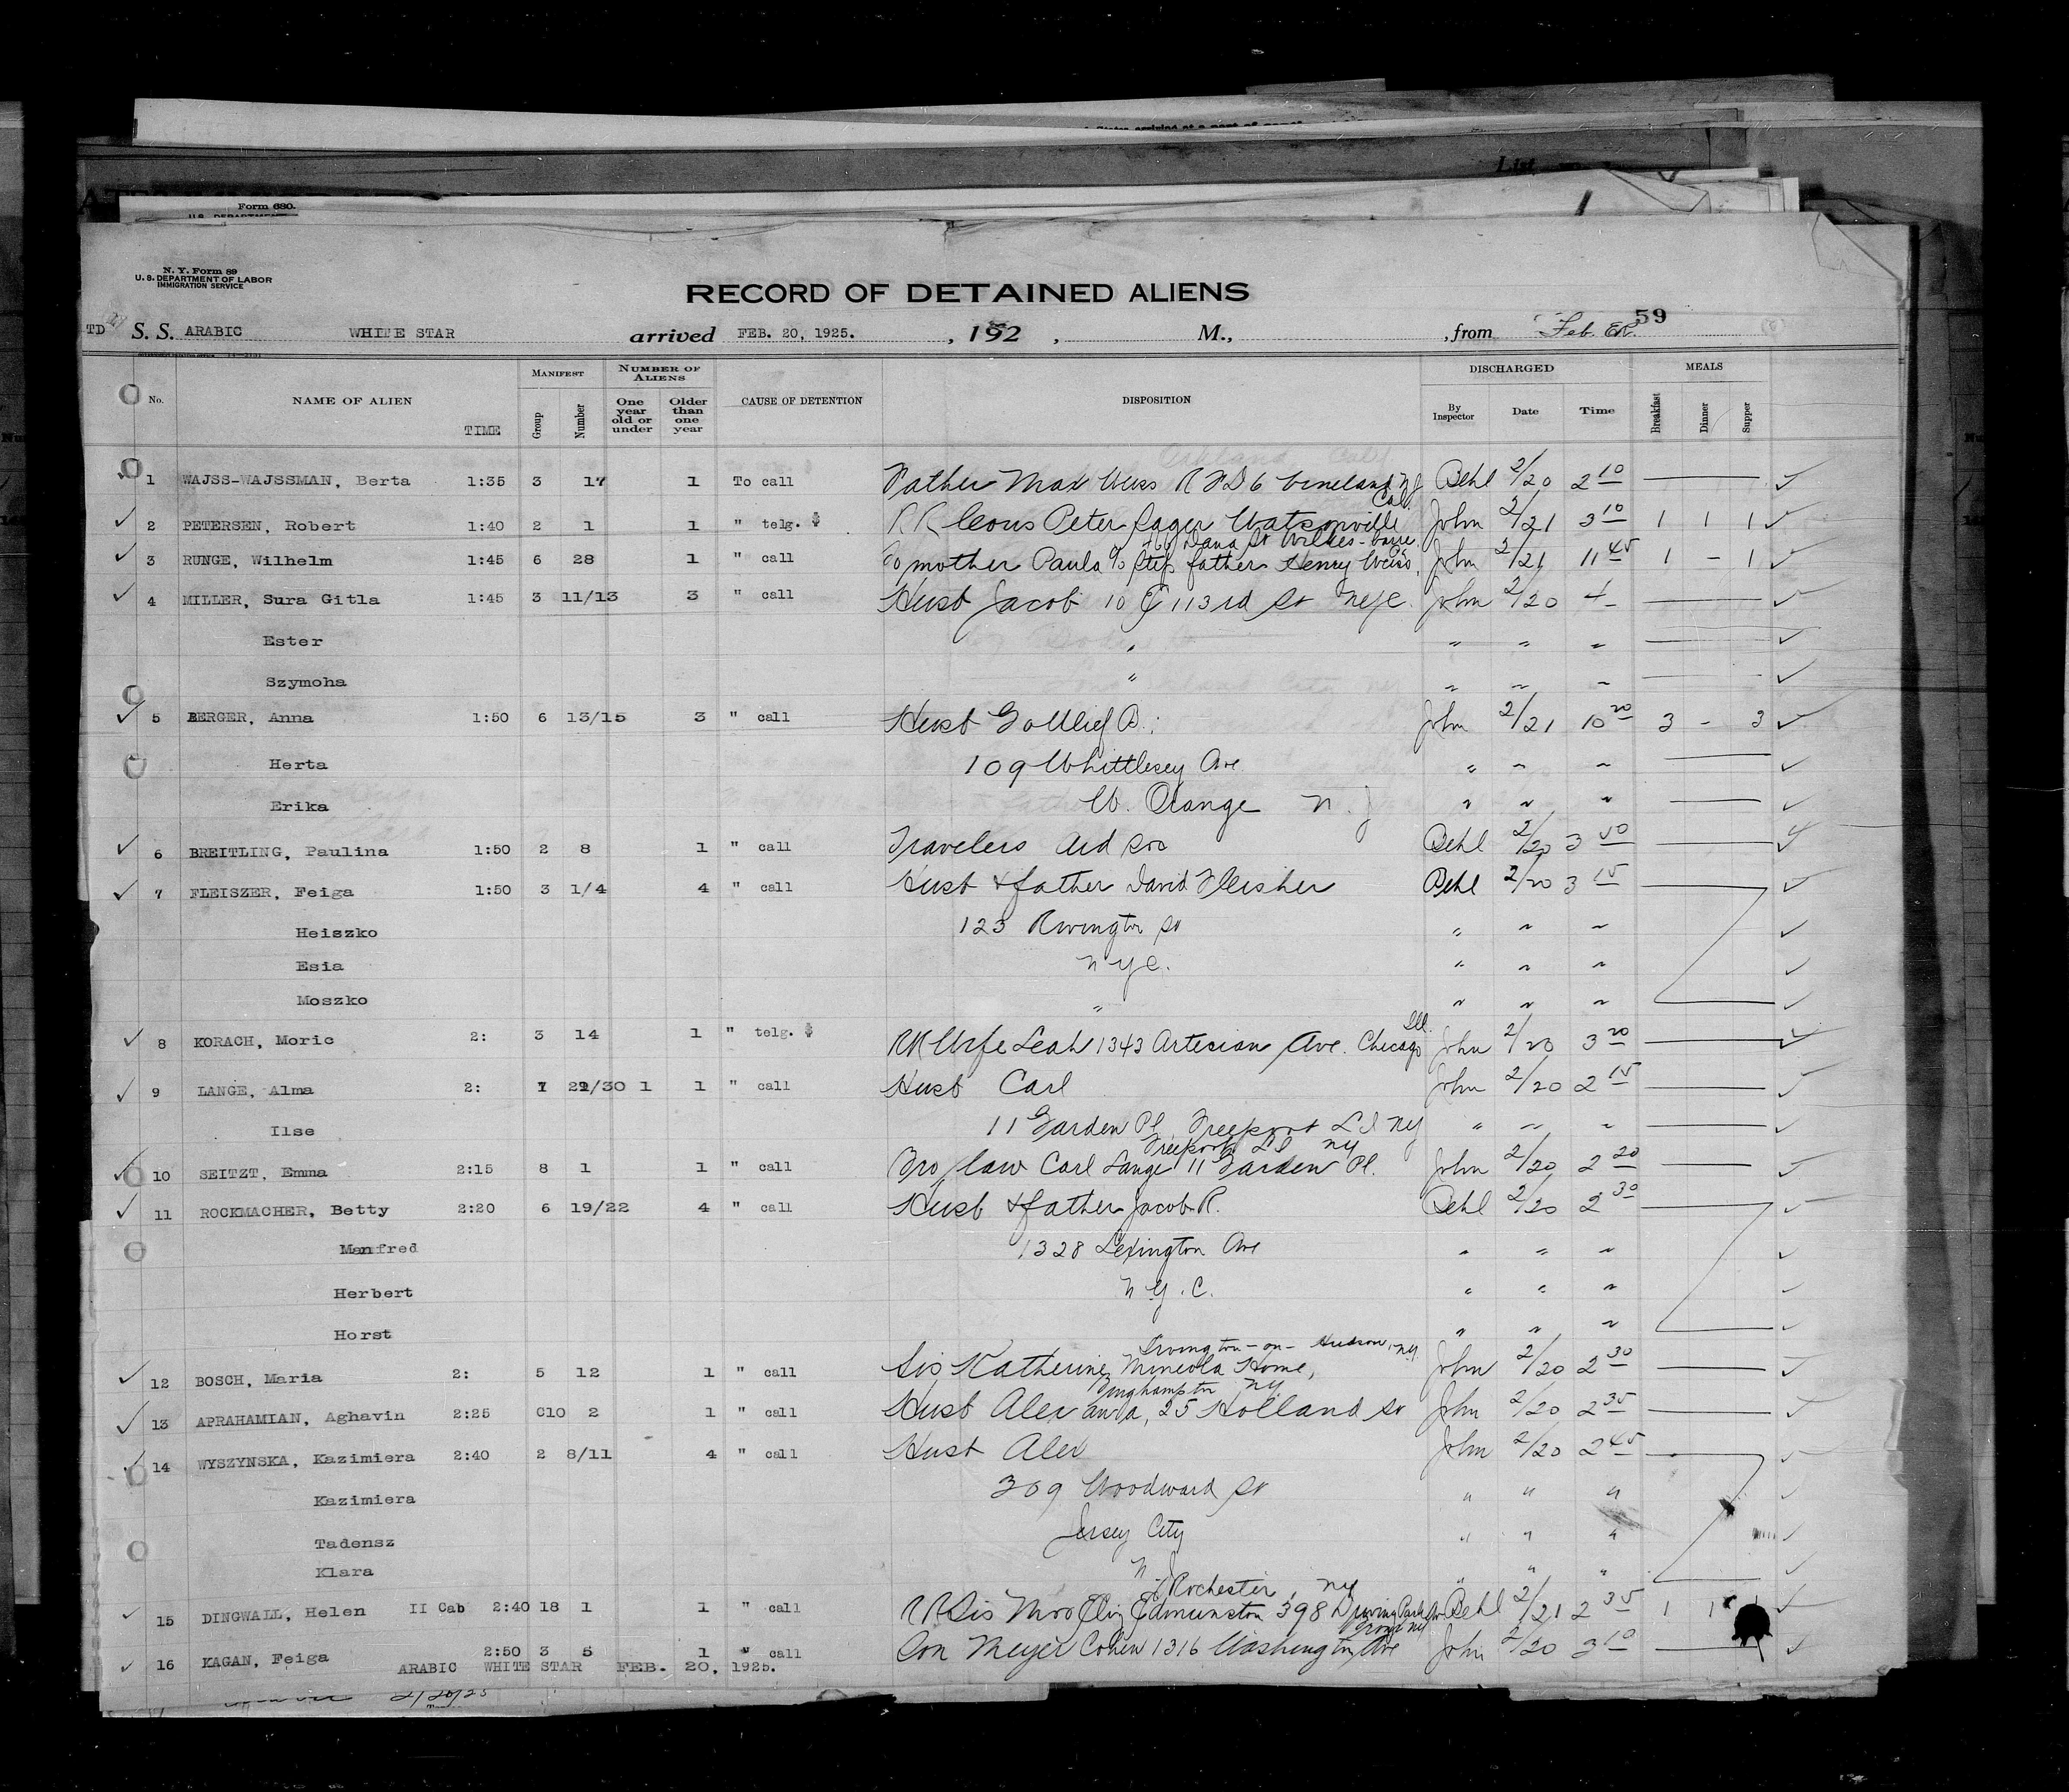 List
Form 680.
N. Y. Form 89
U. S. DEPARTMENT OF LABOR
IMMIGRATION SERVICE
RECORD OF DETAINED ALIENS
59
TD S. S. ARABIC WHITE STAR arrived FEB. 20, 1925. , 192 , M., , from Feb.
MANIFEST NUMBER OF ALIENS DISCHARGED MEALS
No. NAME OF ALIEN TIME Group Number One year old or under Older than one year CAUSE OF DETENTION DISPOSITION By Inspector Date Time Breakfast Dinner Supper
1 WAJSS-WAJSSMAN, Berta 1:35 3 17 1 To call Father Max Weiss R F D 6 Vineland NJ Behl 2/20 2 10
Cal.
2 PETERSEN, Robert 1:40 2 1 1 " telg. RR Cous Peter Sager Watsonville John 2/21 3 10 1 1 1
Dana St Wilkes-barre
3 RUNGE, Wilhelm 1:45 6 28 1 " call To mother Paula c/o Step father Henry Weiss, John 2/21 11 45 1 - 1
4 MILLER, Sura Gitla 1:45 3 11/13 3 " call Husb Jacob 10 E 113rd St NYC. John 2/20 4-
Ester " " " "
Szymoha " " " "
5 BERGER, Anna 1:50 6 13/15 3 " call Husb Gottlief B. : John 2/21 10 20 3 - 3
Herta 109 Whittlesey Ave " " "
Erika W. Orange N. J " " "
6 BREITLING, Paulina 1:50 2 8 1 " call Travelers Aid Soc Behl 2/20 3 50
7 FLEISZER, Feiga 1:50 3 1/4 4 " call Husb & father David Fleisher Behl 2/20 3 15
Heiszko 123 Rivington St " " "
Esia NYC. " " "
Moszko " " " "
Ill.
8 KORACH, Moric 2: 3 14 1 " telg. RR Wife Leah 1343 Artesian Ave. Chicago John 2/20 3 20
9 LANGE, Alma 2: 29/30 1 1 " call Husb Carl John 2/20 2 15
Ilse 11 Garden Pl Freeport L I NY " " "
Freeport L I NY
10 SEITZT, Emma 2:15 8 1 1 " call Bro/law Carl Lange 11 Garden Pl. John 2/20 2 20
11 ROCKMACHER, Betty 2:20 6 19/22 4 " call Husb & father Jacob R. Behl 2/20 2 30
Manfred 1328 Lexington Ave " " "
Herbert N.Y.C. " " "
Horst " " "
Irvington-on-Hudson, NY.
12 BOSCH, Maria 2: 5 12 1 " call Sis Katherine, Mineola Home, John 2/20 2 30
Binghampton NY
13 APRAHAMIAN, Aghavin 2:25 C10 2 1 " call Husb Alexania, 25 Holland St John 2/20 2 35
14 WYSZYNSKA, Kazimiera 2:40 2 8/11 4 " call Husb Alex John 2/20 2 45
Kazimiera 309 Woodward St " " "
Tadensz Jersey City " " "
Klara N.J. " " "
Rochester, NY
15 DINGWALL, Helen II Cab 2:40 18 1 1 " call RR Sis Mrs Eliz Edmunston 398 Driving Park Av Behl 2/21 2 35 1 1
Bronx NY
16 KAGAN, Feiga 2:50 3 5 1 " call Son Meyer Cohen 1316 Washington Ave John 2/20 3 10
ARABIC WHITE STAR FEB. 20, 1925.
2/20/25